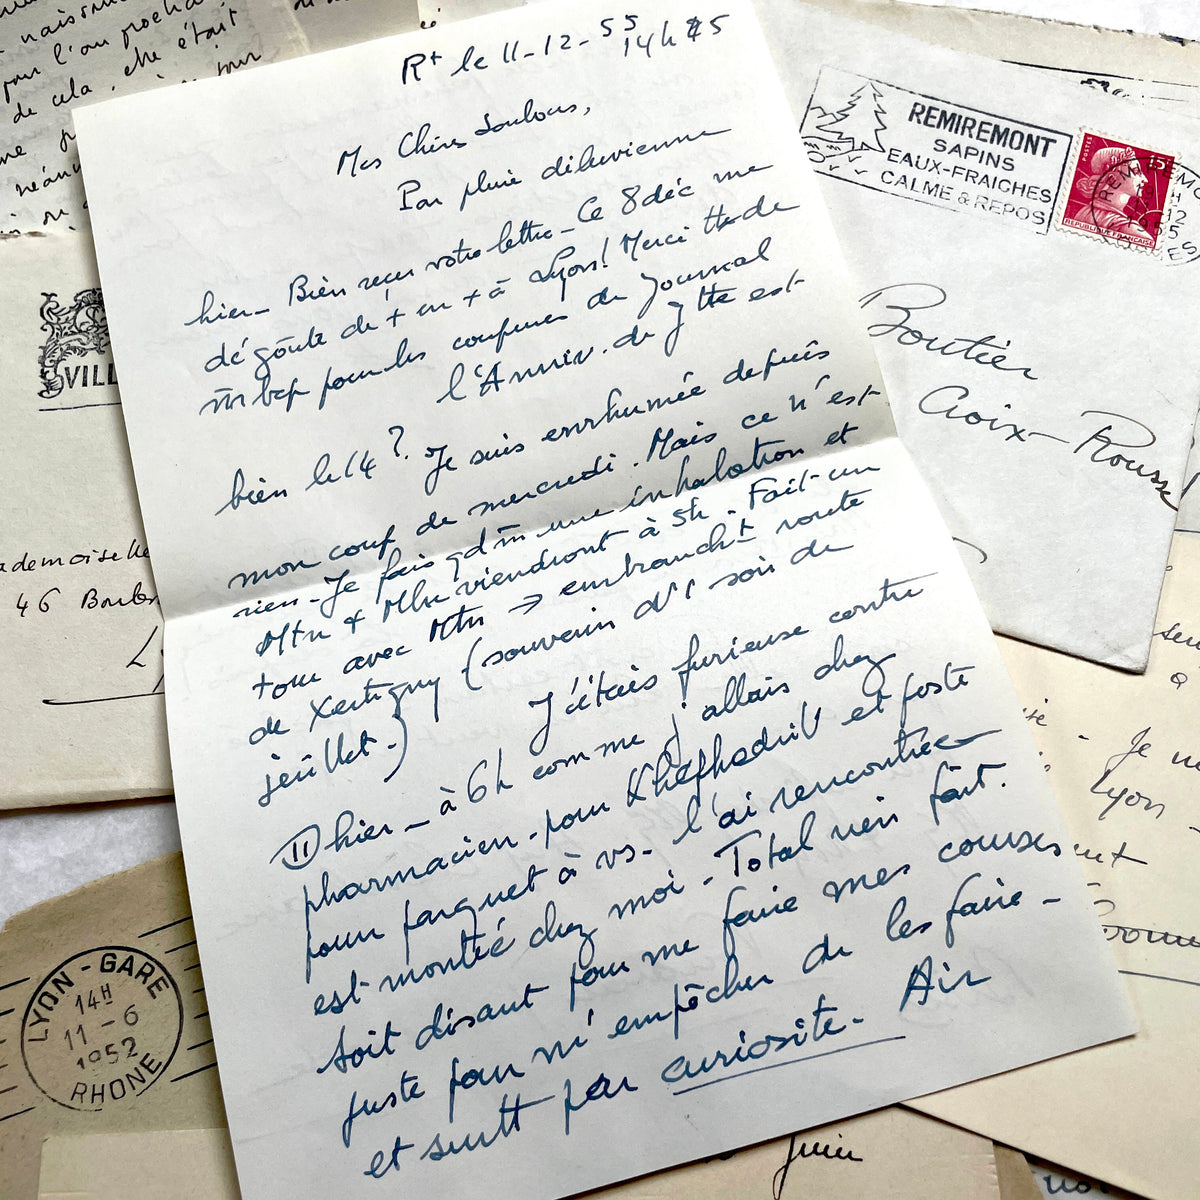 Rt le 11-12-55
14h45
Mes Chères Loulous,
Par pluie diluvienne
hier_ Bien reçu votre lettre_ Ce 8 déc me
dégoûte de + en + à Lyon! Merci tte de
m bcp pour les coupures du Journal
l'Anniv. de Jtte est
bien le 14? Je suis enrhumée depuis
mon coup de mercredi. Mais ce n'est
rien_Je fais qd m une inhalation et
Mtn & Mme viendront à 5h_ Fait un
tour avec Mtn → embrancht route
de Xertigny (souvenir d'1 soir de
jeuillet_)
J'étais furieuse contre
11 hier_ à 6h comme j'allais chez
pharmacien_pour et poste
pour paquet à vs_ l'ai rencontrée
est montée chez moi_Total rien fait.
soit disant pour me faire mes courses
juste pour m'empêcher de les faire_
et surtt par curiosité_ Air
REMIREMONT
SAPINS
EAUX-FRAICHES
CALME & REPOS
POSTES
15F
REPUBLIQUE FRANCAISE
REMIREMO
12
1955
Boutier
Croix-Rousse
naissa
pour l'an prochai
de cela, elle était
VILL
ademoiselle
46 Boulev
LYON-GARE
14H
11-6
1952
RHONE
Je ne
Lyon
Juin